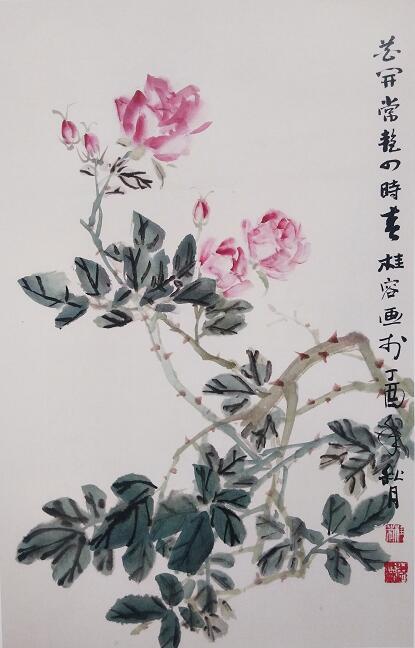 花开常艳四時春桂容画于丁酉年秋月